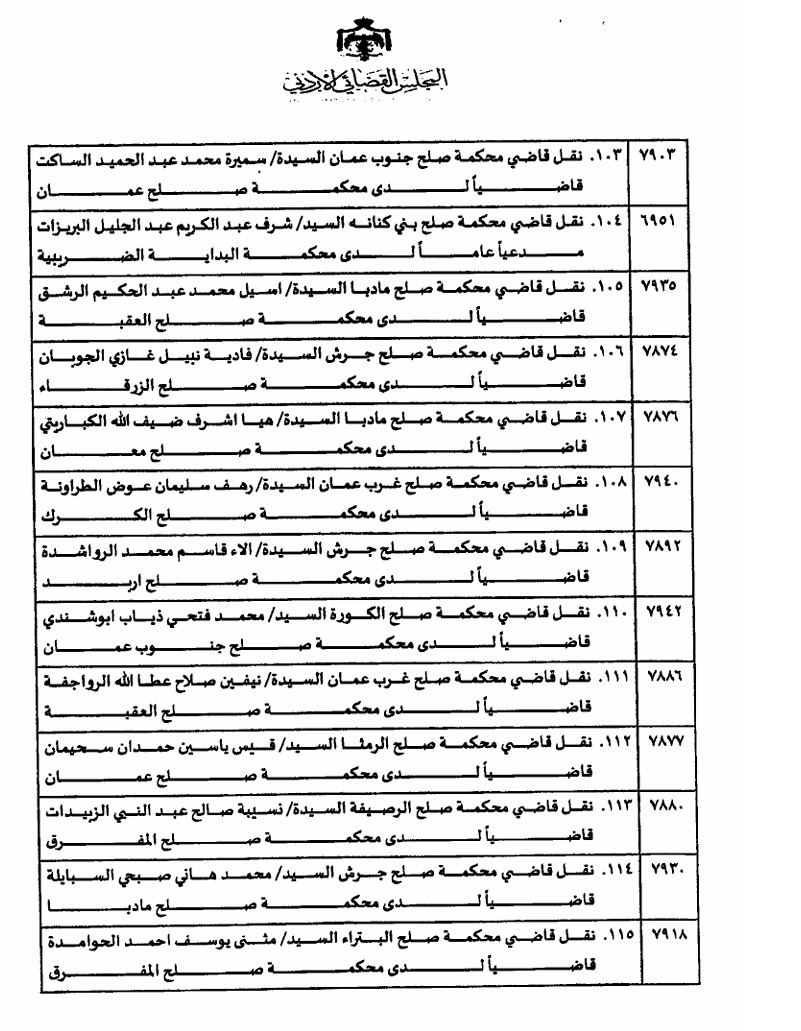 المجلس القضائي الأردني
٧٩٠٣ ١٠٣. نقل قاضي محكمة صلح جنوب عمان السيدة/ سميرة محمد عبد الحميد الساكت
قاضياً لدى محكمة صلح عمان
٦٩٥١ ١٠٤. نقل قاضي محكمة صلح بني كنانه السيد/ شرف عبد الكريم عبد الجليل البريزات
مدعياً عاماً لدى محكمة البداية الضريبية
٧٩٣٥ ١٠٥. نقل قاضي محكمة صلح مادبا السيدة/ اسيل محمد عبد الحكيم الرشق
قاضياً لدى محكمة صلح العقبة
٧٨٧٤ ١٠٦. نقل قاضي محكمة صلح جرش السيدة/ فادية نبيل غازي الجوبان
قاضياً لدى محكمة صلح الزرقاء
٧٨٧٦ ١٠٧. نقل قاضي محكمة صلح مادبا السيدة/ هيا اشرف ضيف الله الكباريتي
قاضياً لدى محكمة صلح معان
٧٩٤٠ ١٠٨. نقل قاضي محكمة صلح غرب عمان السيدة/ رهف سليمان عوض الطراونة
قاضياً لدى محكمة صلح الكرك
٧٨٩٢ ١٠٩. نقل قاضي محكمة صلح جرش السيدة/ الاء قاسم محمد الرواشدة
قاضياً لدى محكمة صلح اربد
٧٩٤٢ ١١٠. نقل قاضي محكمة صلح الكورة السيد/ محمد فتحي ذياب ابوشندي
قاضياً لدى محكمة صلح جنوب عمان
٧٨٨٦ ١١١. نقل قاضي محكمة صلح غرب عمان السيدة/ نيفين صلاح عطا الله الرواجفة
قاضياً لدى محكمة صلح العقبة
٧٨٧٧ ١١٢. نقل قاضي محكمة صلح الرمثا السيد/ قيس ياسين حمدان سحيمان
قاضياً لدى محكمة صلح عمان
٧٨٨٠ ١١٣. نقل قاضي محكمة صلح الرصيفة السيدة/ نسيبة صالح عبد النبي الزبيدات
قاضياً لدى محكمة صلح المفرق
٧٩٣٠ ١١٤. نقل قاضي محكمة صلح جرش السيد/ محمد هاني صبحي السبايلة
قاضياً لدى محكمة صلح مادبا
٧٩١٨ ١١٥. نقل قاضي محكمة صلح البتراء السيد/ مثنى يوسف احمد الحوامدة
قاضياً لدى محكمة صلح المفرق